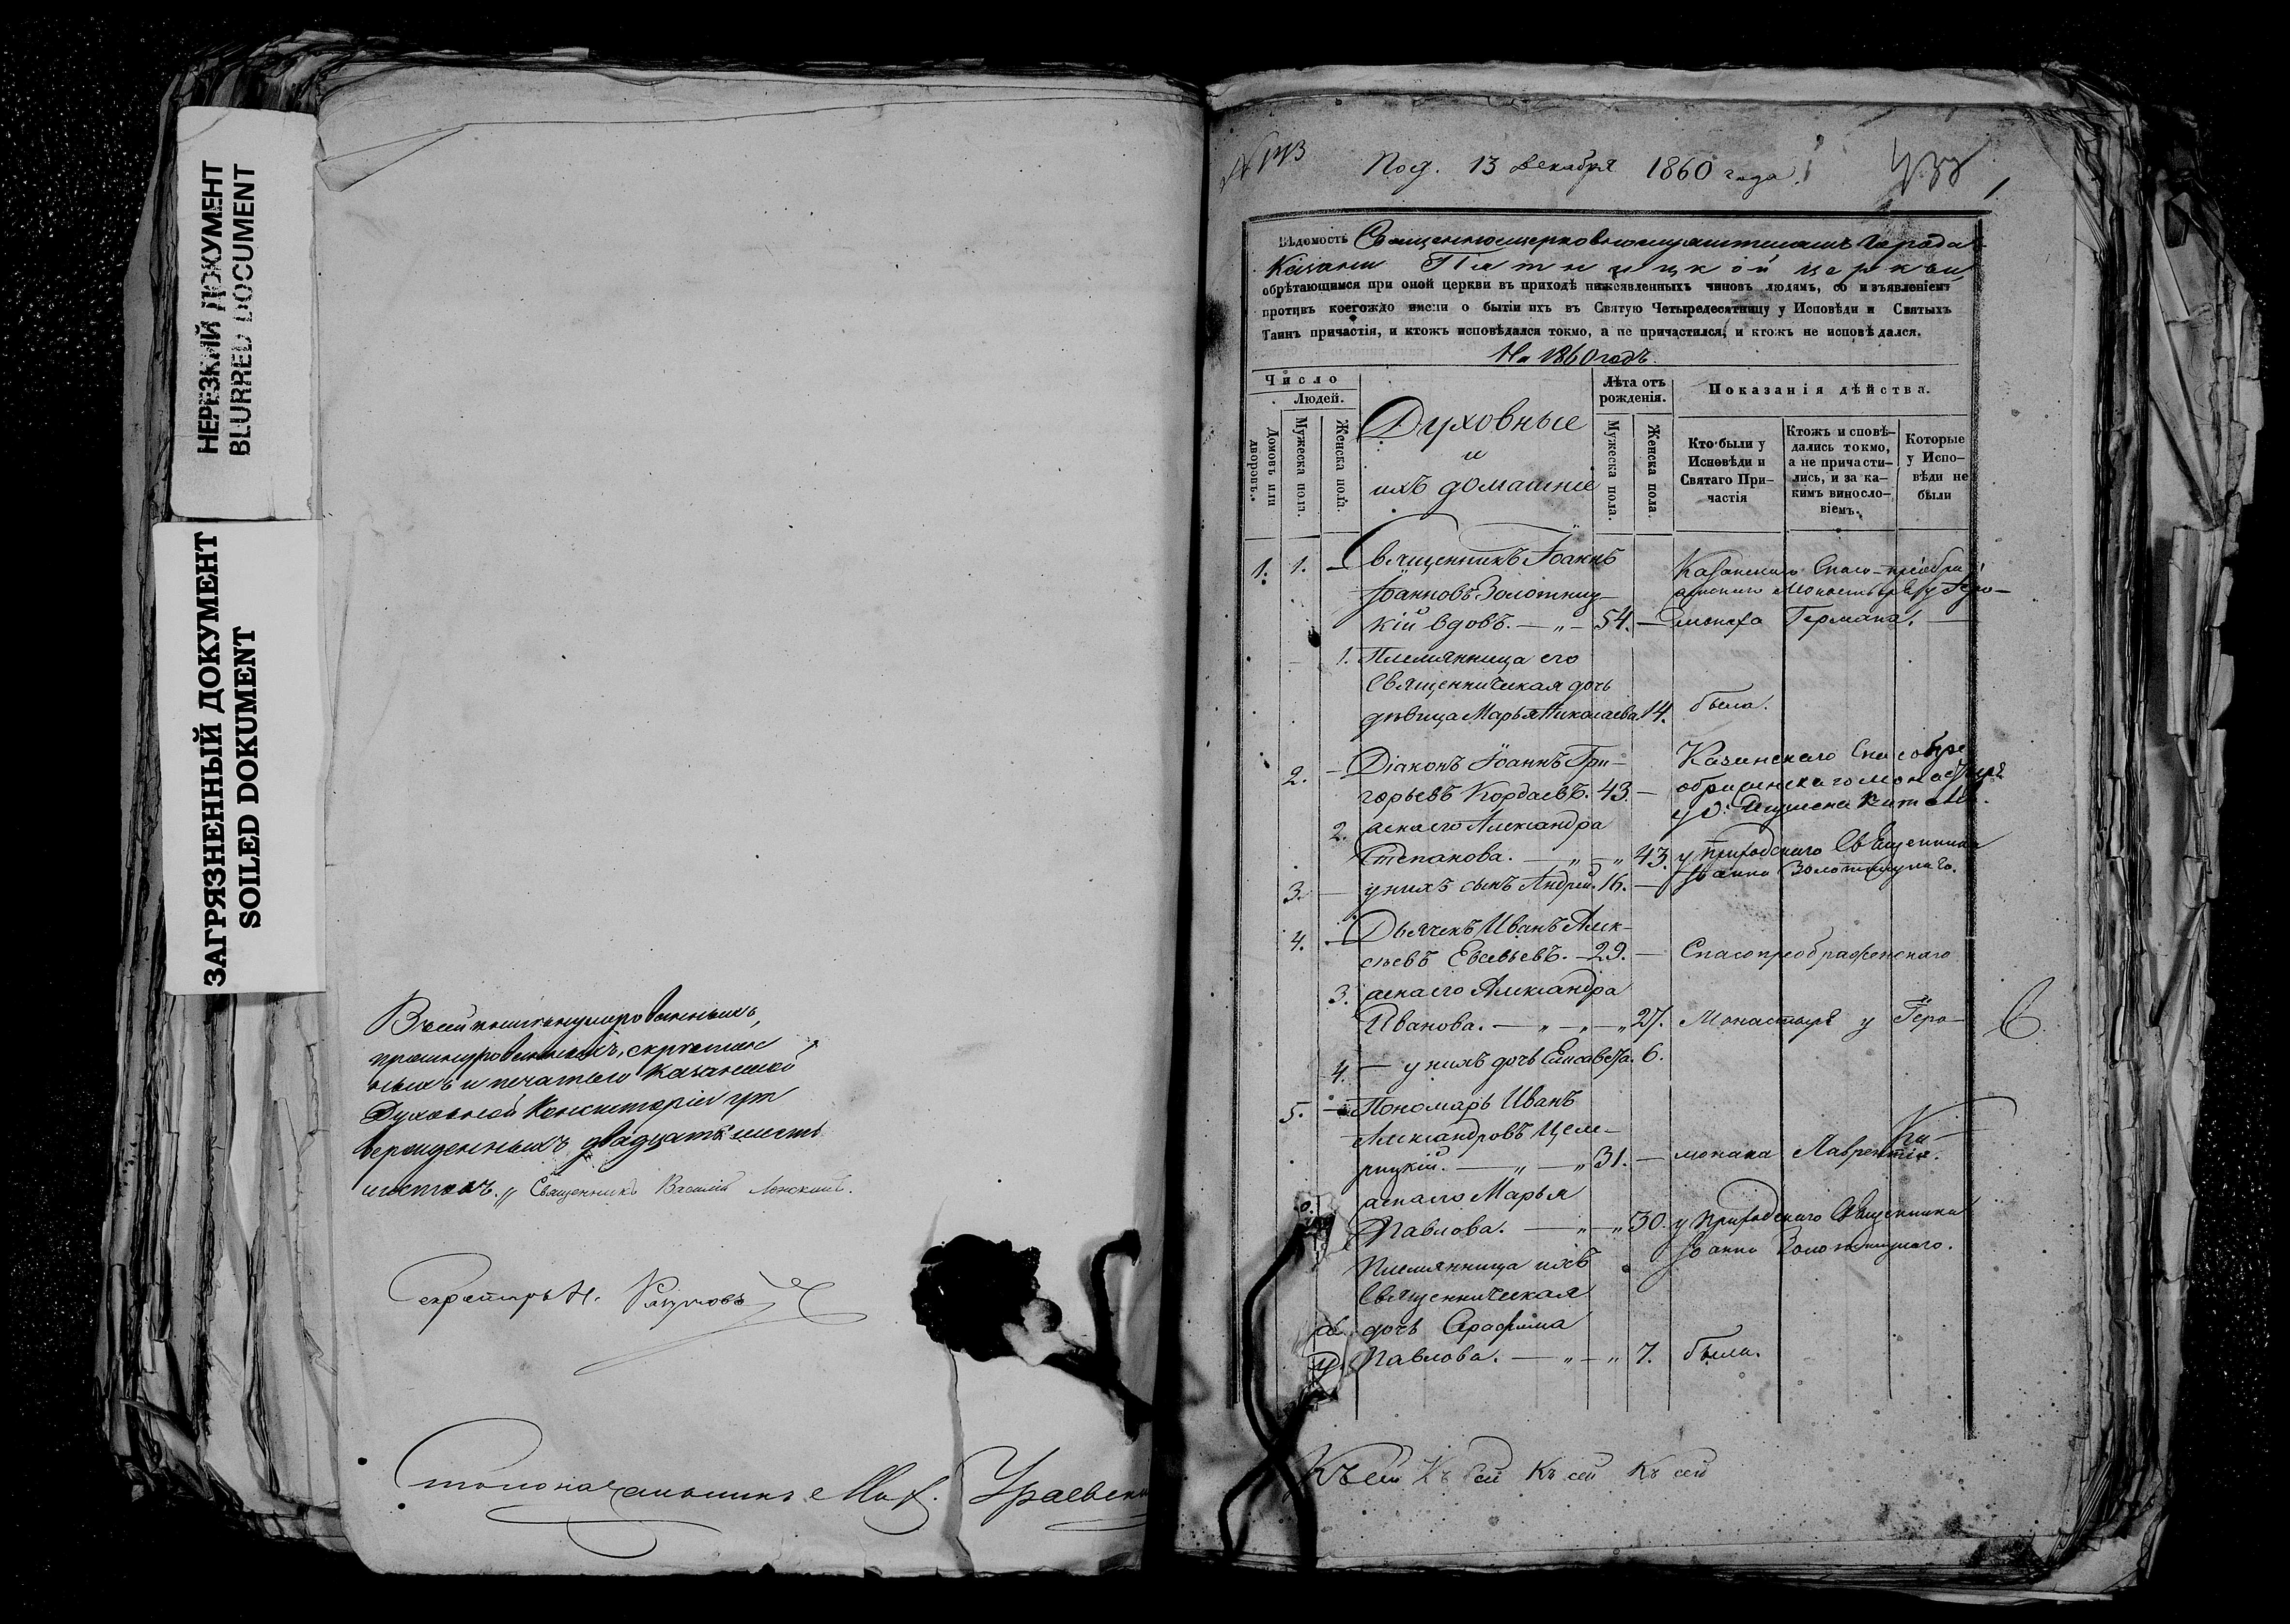 НЕРЕЗКИЙ ДОКУМЕНТ
BLURRED DOCUMENT
ЗАГРЯЗНЕННЫЙ ДОКУМЕНТ
SOILED DOKUMENT
нумерованныхъ,
прошнурованныхъ, скрѣплен
ныхъ и печатью Казанской
Духовной Консисторіи ут
вержденныхъ двадцать шесть
листовъ. Священникъ Василій
Секретарь Н.
Столоначальникъ
Под. 13 Декабря 1860 года.
1
Вѣдомость Священноцерковнослужителямъ города
Казани Пятницкой церкви
обрѣтающимся при оной церкви въ приходѣ нижеявленныхъ чиновъ людямъ, со изъявленіемъ
противъ коегождо имени о бытіи ихъ въ Святую Четыредесятницу у Исповѣди и Святыхъ
Таинъ причастія, и ктожъ исповѣдался токмо, а не причастился, и ктожъ не исповѣдался.
На 1860 годъ
Число
Людей.
Домовъ или дворовъ.
Мужеска пола.
Женска пола.
Духовные
и
ихъ домашніе
Лѣта отъ рожденія.
Мужеска пола.
Женска пола.
Показанія дѣйства.
Кто были у Исповѣди и Святаго Причастія
Ктожъ исповѣ–
дались токмо,
а не причасти–
лись, и за ка–
кимъ винословіемъ.
Которые
у Испо–
вѣди не
были
1. 1. — Священникъ Іоаннъ Казанскаго Спасо-преобра
Іоанновъ Золотниц– Монастыря у Іеро–
кій вдовъ. — „ — 54. — монаха Германа.
1. Племянница его
Священническая дочь
дѣвица Марья Николаева 14. была.
2. — Діаконъ Іоаннъ Гри– Казанскаго Спасопре
горьевъ Кордаевъ. 43. — ображенскаго монастыря
у О. Игумена
2. жена его Александра
Степанова. — „ — „ 43. у приходскаго Священника
3. — у нихъ сынъ Андрей. 16. — Іоанна Золотницкаго.
4. — Дьячекъ Иванъ Алек–
сѣевъ Евсевьевъ. — 29. — Спасопреображенскаго
3. жена его Александра
Иванова. — „ — „ — „ 27. Монастыря у Іеро–
4. — у нихъ дочь Елисавета. 6.
5. — Пономарь Иванъ
Александровъ Целе–
рицкій. — „ — „ 31. — монаха Лаврентія.
жена его Марья
Павлова. — „ — „ 30. у приходскаго Священника
Племянница ихъ Іоанна Золотницкаго.
Священническая
дочь Серафима
Павлова. — „ — „ 7. была.
Къ сей Къ сей Къ сей Къ сей